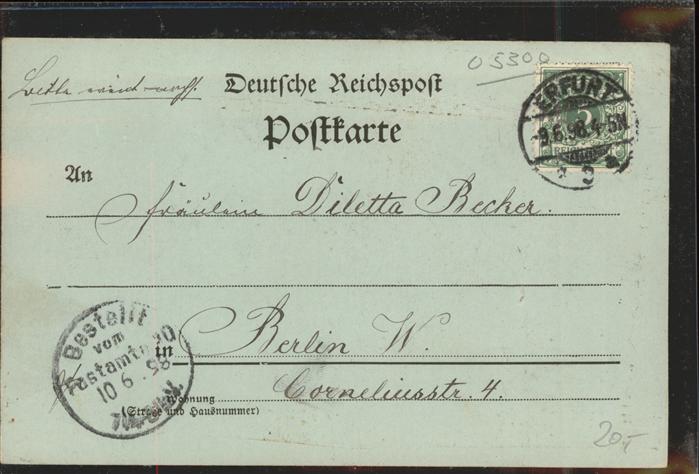 05300
Deutsche Reichspost
Postkarte
ERFURT
9.6.98.4-5N.
3
REICHSPOST
3 a
An
Fräulein Diletta Becker.
Bestellt
vom
Postamte 10
10 6 98
in Berlin W.
Corneliusstr. 4.
Wohnung
(Straße und Hausnummer)
20,-